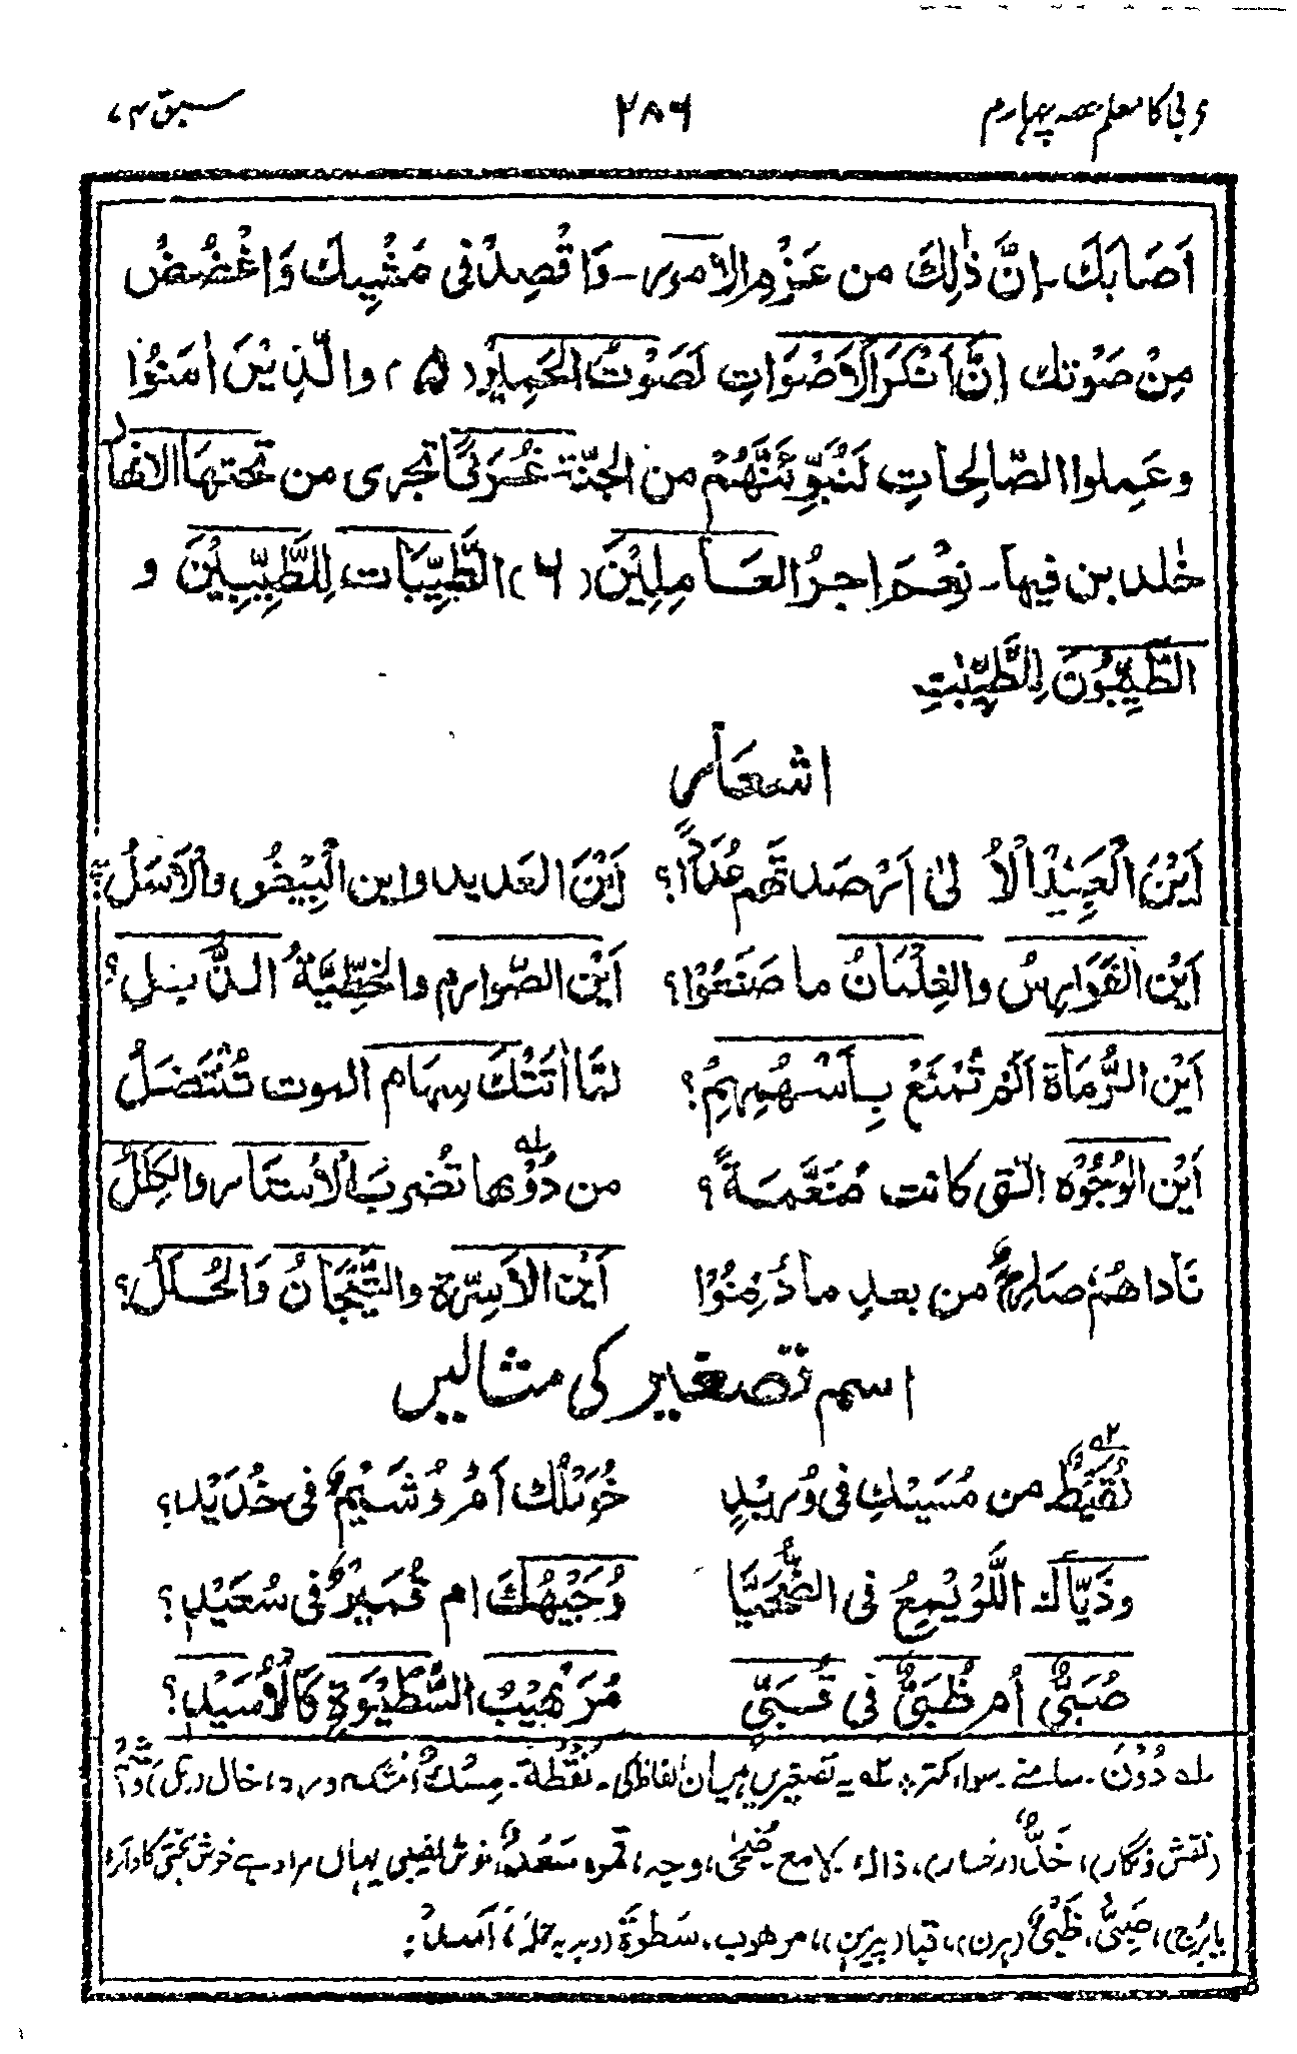 عربی کا معلم حصہ چہارم
۲۸۶
سبق ۷۴
اَصَابَكَ ـ اِنَّ ذٰلِكَ من عَزْمِ الامور ـ وَاقْصِدْ فى مَشْيِكَ وَاغْضُضْ
مِنْ صَوْتك اِنَّ اَنْكَرَ الاَصْوَاتِ لَصَوْتُ الحَمِيْرِ (۵) والَّذِيْنَ اٰمَنُوْا
وعَمِلوا الصّالِحاتِ لَنُبَوِّئَنَّهُمْ من الجنّة غُرَفًا تجرى من تحتهَا الانهارُ
خٰلدين فيها ـ نِعْمَ اجرُ العَامِلِيْنَ (۶) الطَّيِّبَات لِلطَّيِّبِيْنَ و
الطَّيِّبُوْنَ لِلطَّيِّبٰتِ
اشعار
اَيْنَ الْعَبِيْدُ الْاُلیٰ اَرْصَدتَهم عُدَدًا؟ اَيْنَ العَديد واين الْبِيْضُ والْاَسَلُ؟
اَيْنَ الفَوَارِسُ والغِلْمَانُ ما صَنَعُوْا؟ اَيْنَ الصَّوارم والخَطِّيَّةُ الذُّبل؟
اَيْنَ الرُّمَاة اَلَمْ تُمْنَعْ بِاَسْهُمِهِمْ؟ لمَّا اَتَتْكَ سِهَام الموت تُنْتَضَلُ
اَيْنَ الوُجُوْه الّتى كانت مُنَعَّمَةً؟ من دُوْنها لہ تُضْرب الْاَستَار والكِلَلُ
نَاداهُمْ صَارِخٌ من بعدِ ما دُفِنُوْا اَيْن الاَسِرّة والتِّيْجَانُ وَالحُلَلُ؟
اسم تصغیر کی مثالیں
نُقَيْطٌ ۲ہ من مُسَيْكٍ فى وُرَيْدٍ خُوَيْلُكَ اَمْ وُشَيْمٌ فى خُدَيْدٍ؟
وذَيَّاك اللُّوَيْمِعُ فى الضُّحَيَّا وُجَيْهُكَ ام قُمَيْرٌ فى سُعَيْدٍ؟
صُبَىٌّ اَم ظُبَىٌّ فى قُبَىٍّ مُرَيْهِيْبُ السُّطَيْوَةِ كَالْاُسَيْدِ؟
لہ دُوْنَ ـ سامنے ـ سوا ـ کمتر ٭ ۲ہ یہ تصغیریں ہیں ان الفاظ کی ـ نُقْطَة ـ مِسْكٌ (مشک) ورد، خال (تل)، وَشْمٌ
(نقش و نگار)، خَدٌّ (رخسار)، ذاك، لامع، ضُحٰى، وجه، قمر، سَعْدٌ، خوش نصیبی یہاں مراد ہے خوش بختی کا دائرہ
یا بُرج)، صَبِىٌّ، ظَبْىٌ (ہرن)، قبا (پیرہن)، مرهوب، سَطْوَة (دبدبہ حملہ)، اَسَدٌ ـ